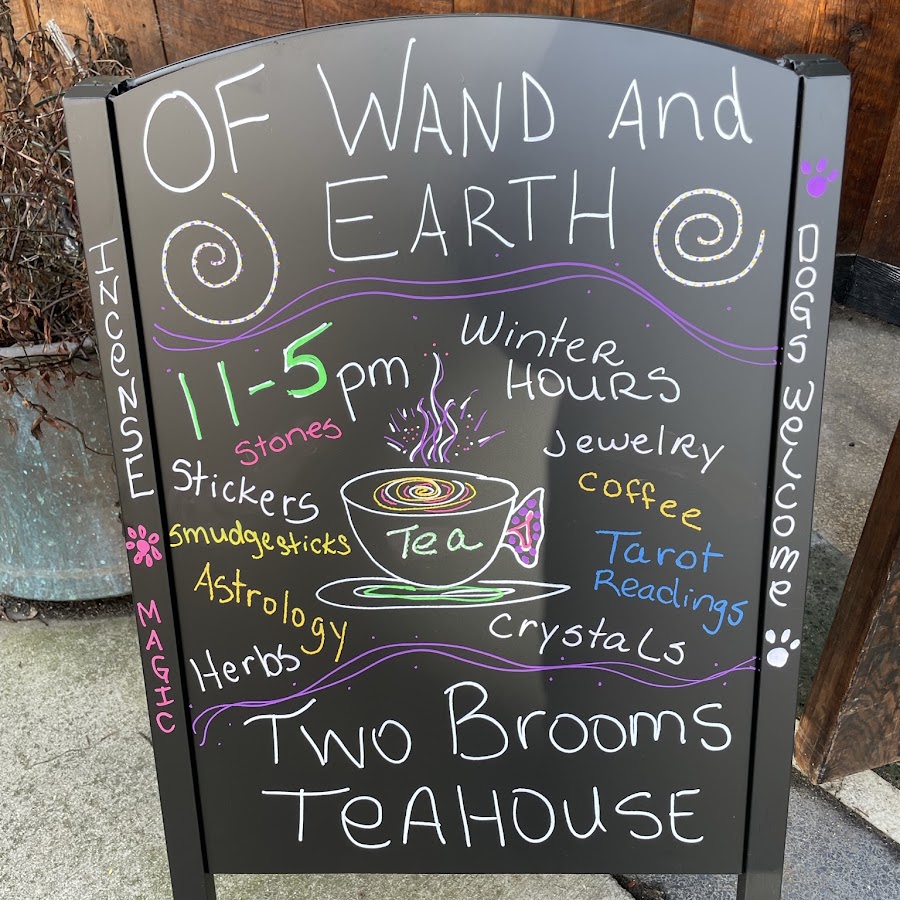 OF WAND And
EARTH
11-5 pm
Winter
HOURS
Stones
Jewelry
Stickers
Coffee
Smudgesticks
Tea
Tarot
Readings
Astrology
Crystals
Herbs
Two Brooms
TeAHOUSE
INCeNSE
MAGIC
DOGS Welcome